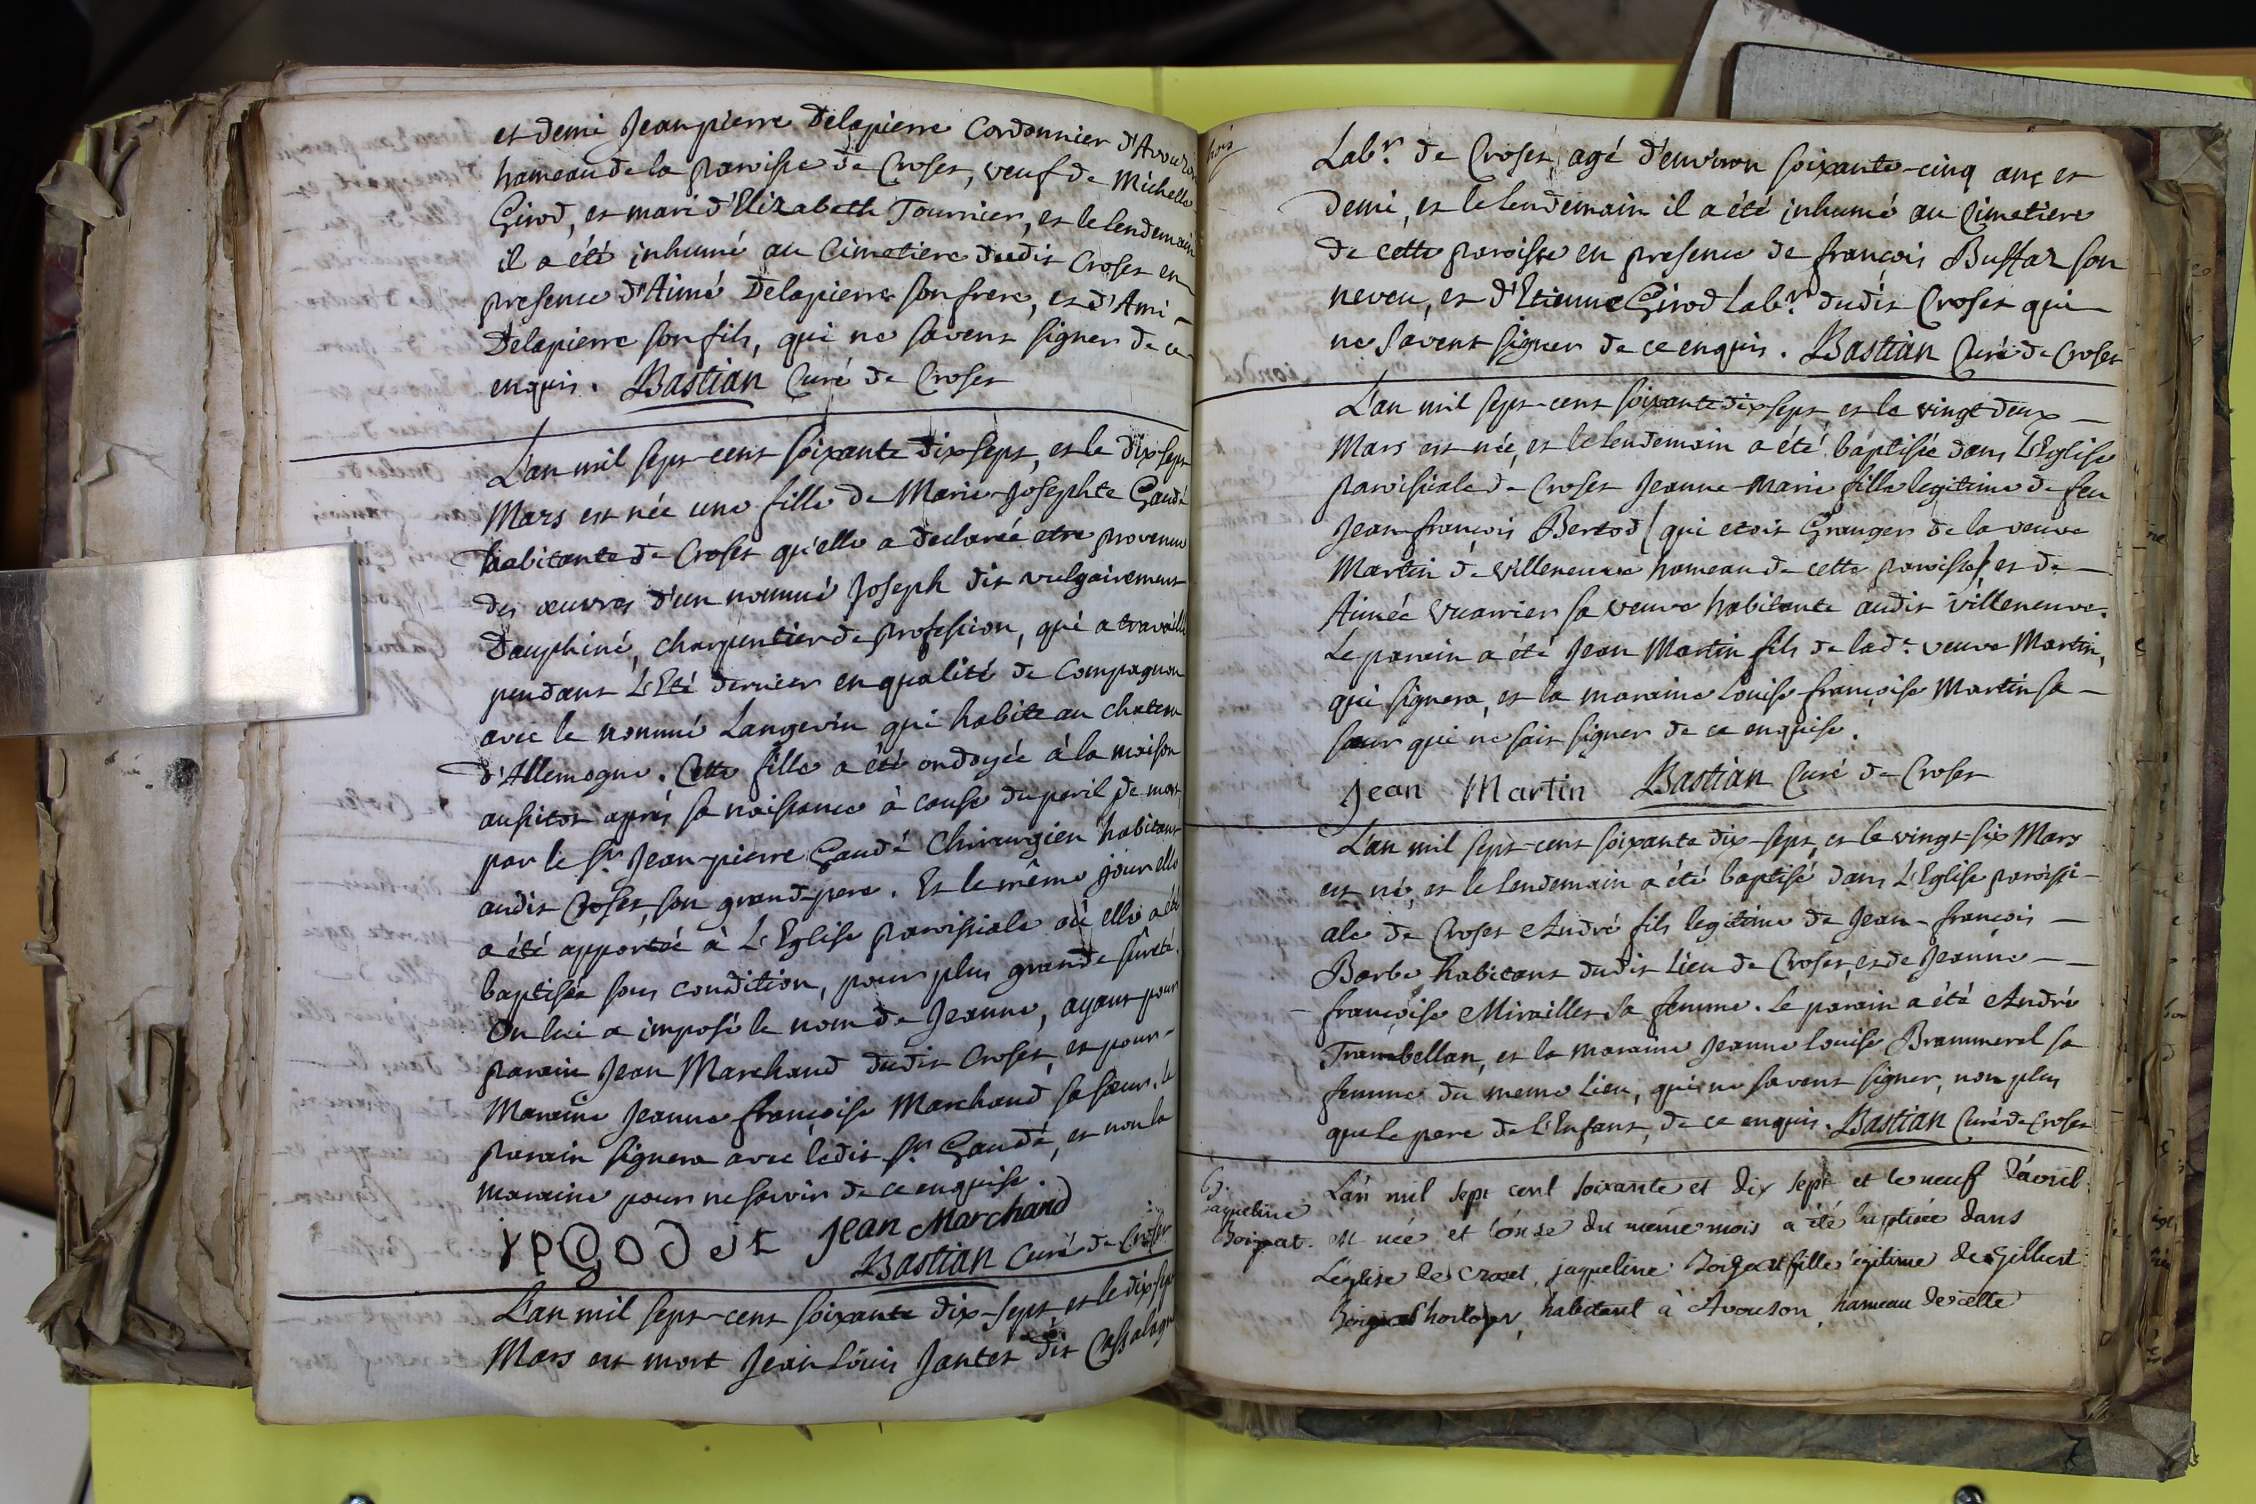 et demi Jeanpierre Delapierre Cordonnier d'Avouzon
hameau de la paroisse de Croset, veuf de Michelle
Girod, et mari d'Elizabeth Tournier, et le lendemain
il a été inhumé au Cimetiere dudit Croset en
presence d'Aimé Delapierre son frere, et d'Ami
Delapierre son fils, qui ne savent signer de ce
enquis. Bastian Curé de Croset
L'an mil sept-cent soixante dix sept, et le dix sept
Mars est née une fille de Marie-Josephte Gaudé
habitante de Croset qu'elle a declarée etre provenue
des œuvres d'un nommé Joseph dit vulgairement
Dauphiné, charpentier de profession, qui a travaillé
pendant L'Eté dernier en qualité de compagnon
avec le nommé Langevin qui habite au chateau
d'Allemogne. Cette fille a été ondoyée à la maison
aussitot après sa naissance à cause du peril de mort
par le Sr. Jean-pierre Gaudé Chirurgien habitant
audit Croset, son grand-pere. Et le même jour elle
a été apportée à L'Eglise paroissiale où elle a été
baptisée sous condition, pour plus grande sûreté.
On lui a imposé le nom de Jeanne, ayant pour
parain Jean Marchand dudit Croset, et pour
Maraine Jeanne françoise Marchand sa sœur. Le
parain signera avec ledit Sr. Gaudé, et non la
maraine pour ne savoir de ce enquise.
Jean Marchand
Bastian Curé de Croset
L'an mil sept-cent soixante dix-sept et le dix sept
Mars est mort Jean Louis Jantet dit
Labr. de Croset, agé d'environ soixante-cinq ans et
demi, et le lendemain il a été inhumé au Cimetiere
de cette paroisse en presence de françois Buffaz son
neveu, et d'Etienne Girod Labr. dudit Croset qui
ne savent signer de ce enquis. Bastian Curé de Croset
L'an mil sept-cent soixante dix sept et le vingt deux
Mars est née, et le lendemain a été baptisée dans L'Eglise
paroissiale de Croset Jeanne-Marie fille legitime de feu
Jean-françois Bertod (qui etoit Granger de la veuve
Martin de Villeneuve hameau de cette paroisse) et de
Aimée Vuarrier sa veuve habitante audit Villeneuve.
Le parain a été Jean Martin fils de lade. veuve Martin,
qui signera, et la maraine Louise-françoise Martin sa
sœur qui ne sait signer de ce enquise.
Jean Martin Bastian Curé de Croset
L'an mil sept-cent soixante dix-sept, et le vingt-six Mars
est né, et le lendemain a été baptisé dans L'Eglise paroissi-
ale de Croset André fils legitime de Jean-françois
Barbe habitant dudit Lieu de Croset, et de Jeanne
françoise Mirailler sa femme. Le parain a été André
Trambellan, et la maraine Jeanne Louise Brammerel sa
femme du meme Lieu, qui ne savent signer, non plus
que le pere de L'Enfant, de ce enquis. Bastian Curé de Croset
jaqueline
Boigeat.
L'an mil sept cent soixante et dix sept et le neuf d'avril
est née et l'onse du même mois a été baptisée dans
L'église de Croset, jaqueline Boigeat fille légitime de Gilbert
Boigeat horloger, habitant à Avouson, hameau de cette